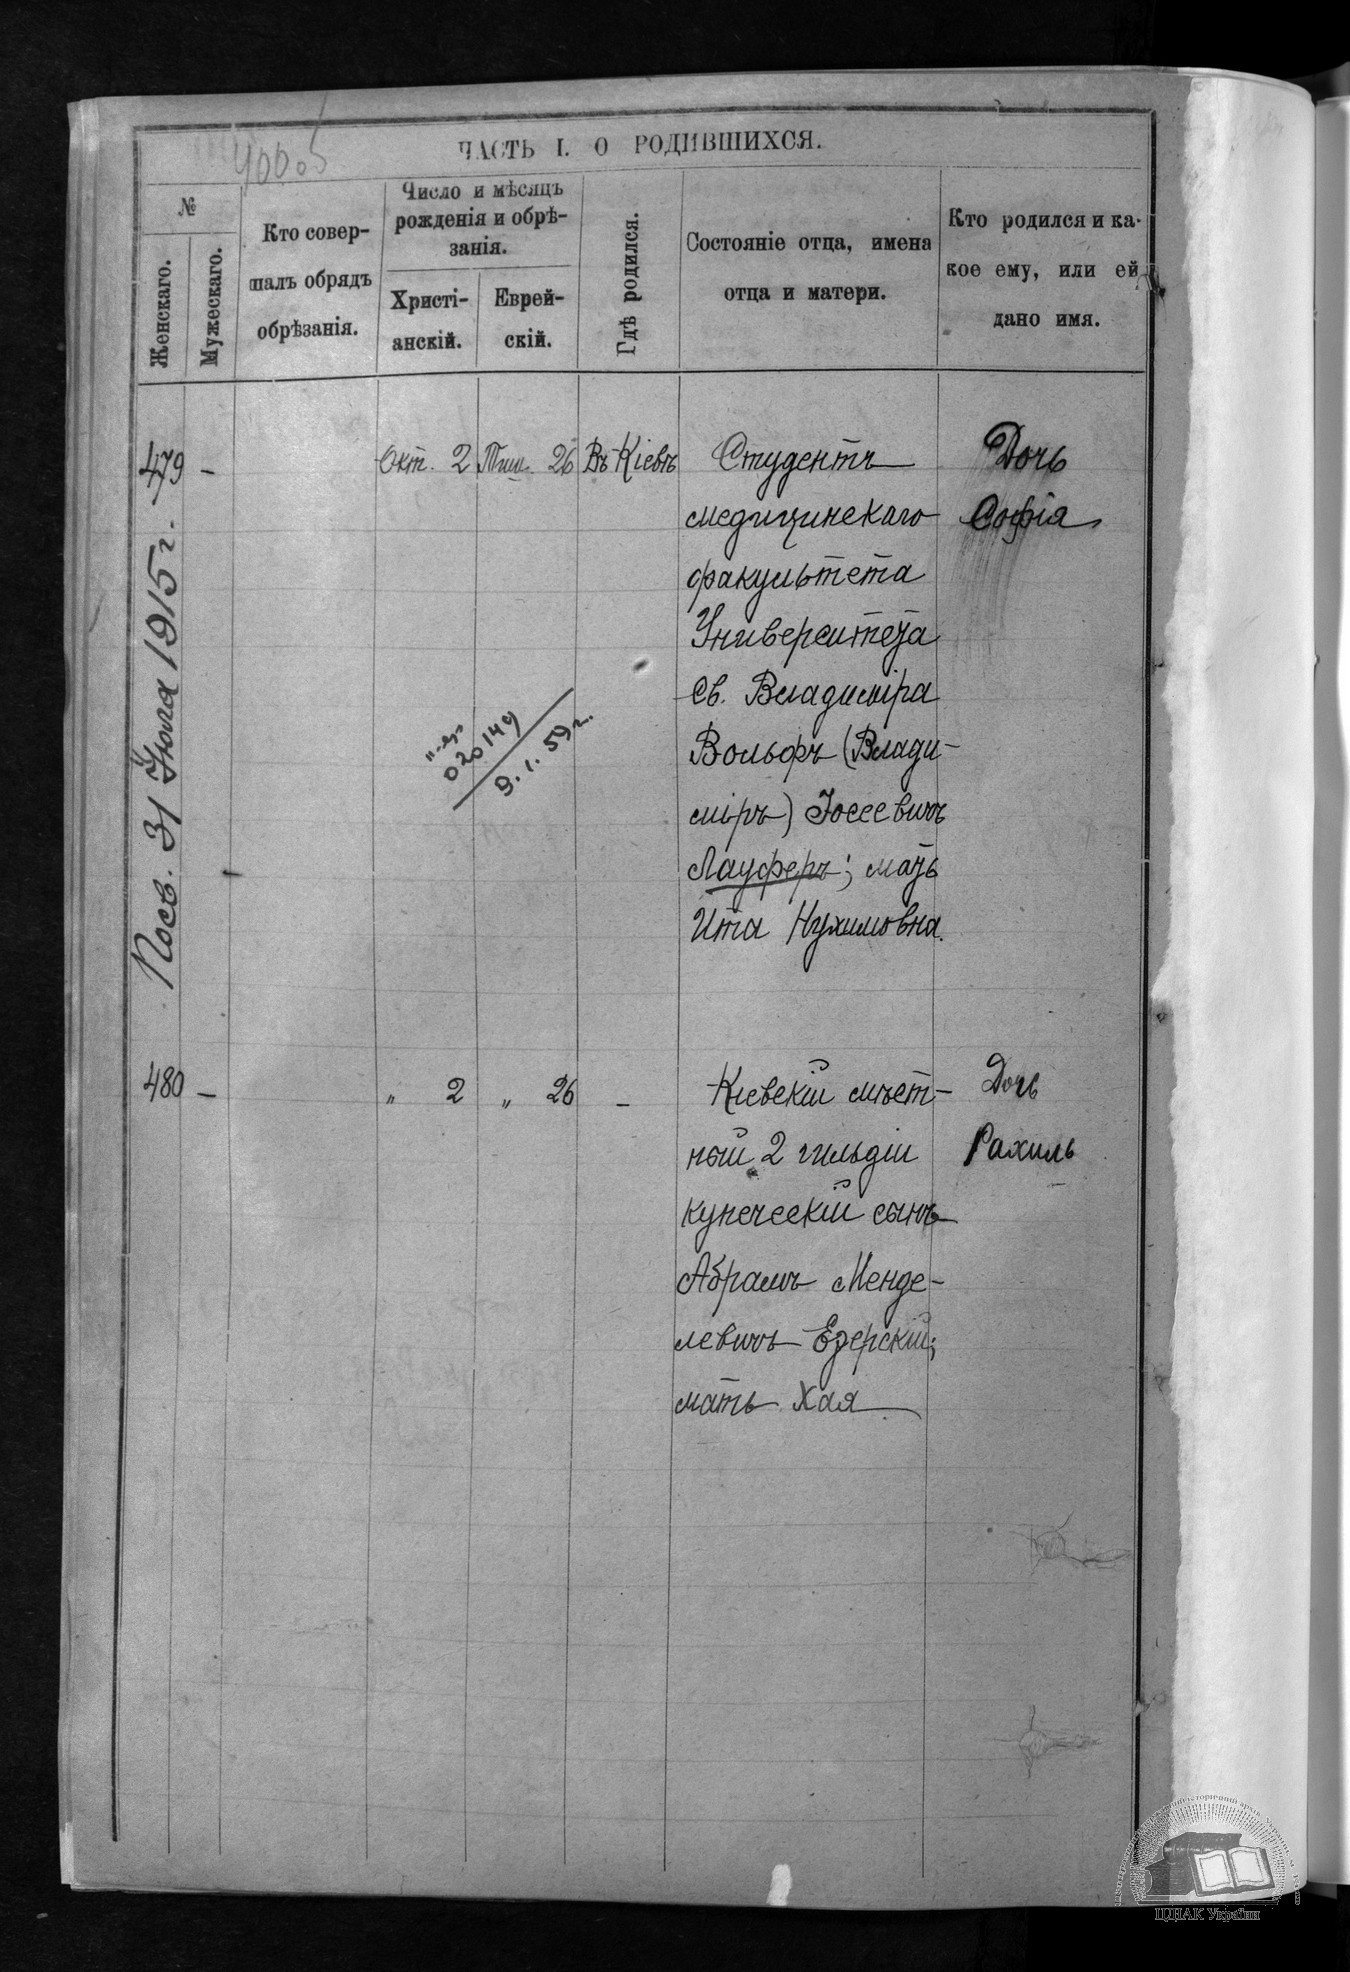 ЧАСТЬ I. О РОДИВШИХСЯ.
№
Женскаго.
Мужескаго.
Кто совер-
шалъ обрядъ
обрѣзанія.
Число и мѣсяцъ
рожденія и обрѣ-
занія.
Христі-
анскій.
Еврей-
скій.
Гдѣ родился.
Состояніе отца, имена
отца и матери.
Кто родился и ка-
кое ему, или ей
дано имя.
479 – Окт. 2 Тиш. 26 Въ Кіевѣ
Студентъ
медицинскаго
факультета
Университета
Св. Владиміра
Вольфъ (Влади-
міръ) Іосеевичъ
Лауферъ; мать
Ита Нухимовна.
Дочь
Софія
31 Іюля 1915 г.
020149
9. 1. 59 г.
480 – " 2 " 26 –
Кіевскій мѣст-
ный 2 гильдіи
купеческій сынъ
Абрамъ Менде-
левичъ Езерскій;
мать Хая
Дочь
Рахиль
ЦДІАК України